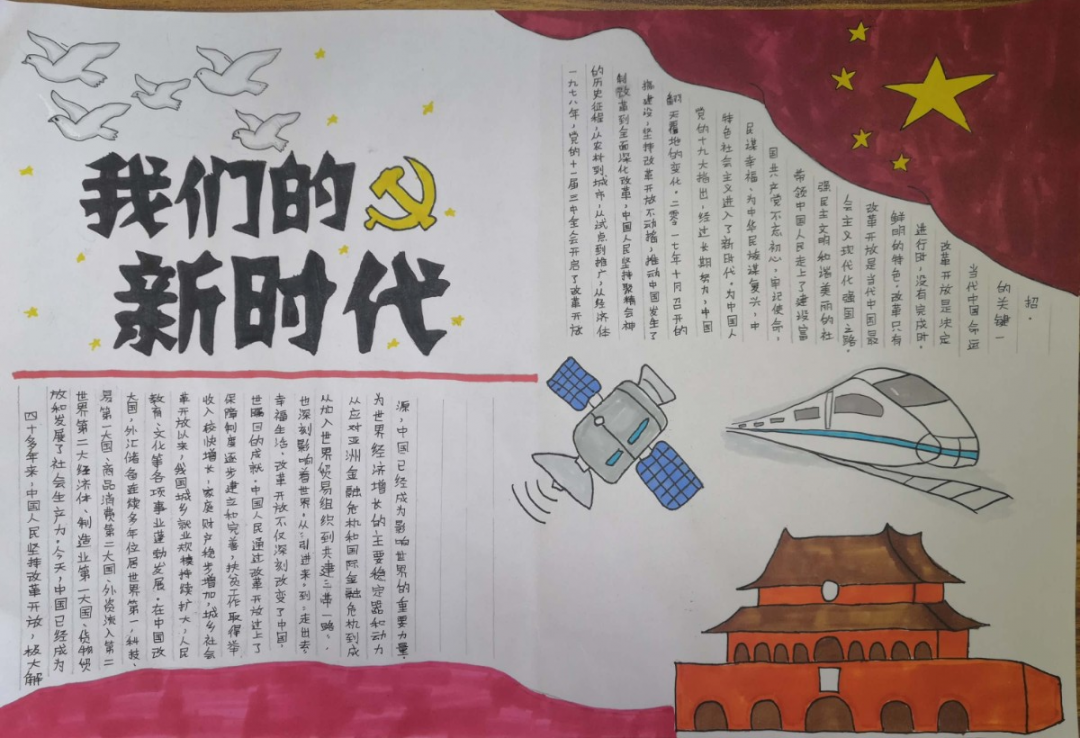 我们的
新时代
一九七八年，党的十一届三中全会开启了改革开放
的历史征程，从农村到城市，从试点到推广，从经济体
制改革到全面深化改革，中国人民坚持聚精会神
搞建设，坚持改革开放不动摇，推动中国发生了
翻天覆地的变化。二零一七年十月召开的
党的十九大指出，经过长期努力，中国
特色社会主义进入了新时代。为中国人
民谋幸福、为中华民族谋复兴，中
国共产党不忘初心，牢记使命，
带领中国人民走上了建设富
强民主文明和谐美丽的社
会主义现代化强国之路。
改革开放是当代中国最
鲜明的特色，改革只有
进行时，没有完成时。
改革开放是决定
当代中国命运
的关键一
招。
四十多年来，中国人民坚持改革开放，极大解
放和发展了社会生产力。今天，中国已经成为
世界第二大经济体、制造业第一大国、货物贸
易第一大国、商品消费第二大国、外资流入第二
大国，外汇储备连续多年位居世界第一，科技、
教育、文化等各项事业蓬勃发展。在中国改
革开放以来，我国城乡就业规模持续扩大，人民
收入较快增长，家庭财产稳步增加，城乡社会
保障制度逐步建立和完善，扶贫工作取得举
世瞩目的成就。中国人民通过改革开放过上了
幸福生活。改革开放不仅深刻改变了中国，
也深刻影响着世界。从“引进来”到“走出去”，
从加入世贸易组织到共建“一带一路”，
从应对亚洲金融危机和国际金融危机到成
为世界经济增长的主要稳定器和动力
源，中国已经成为影响世界的重要力量。